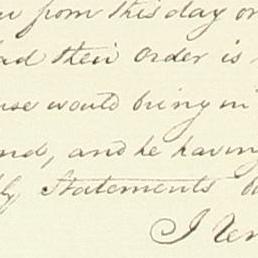 from this day or
their Order is
would bring in
and he having
Statements